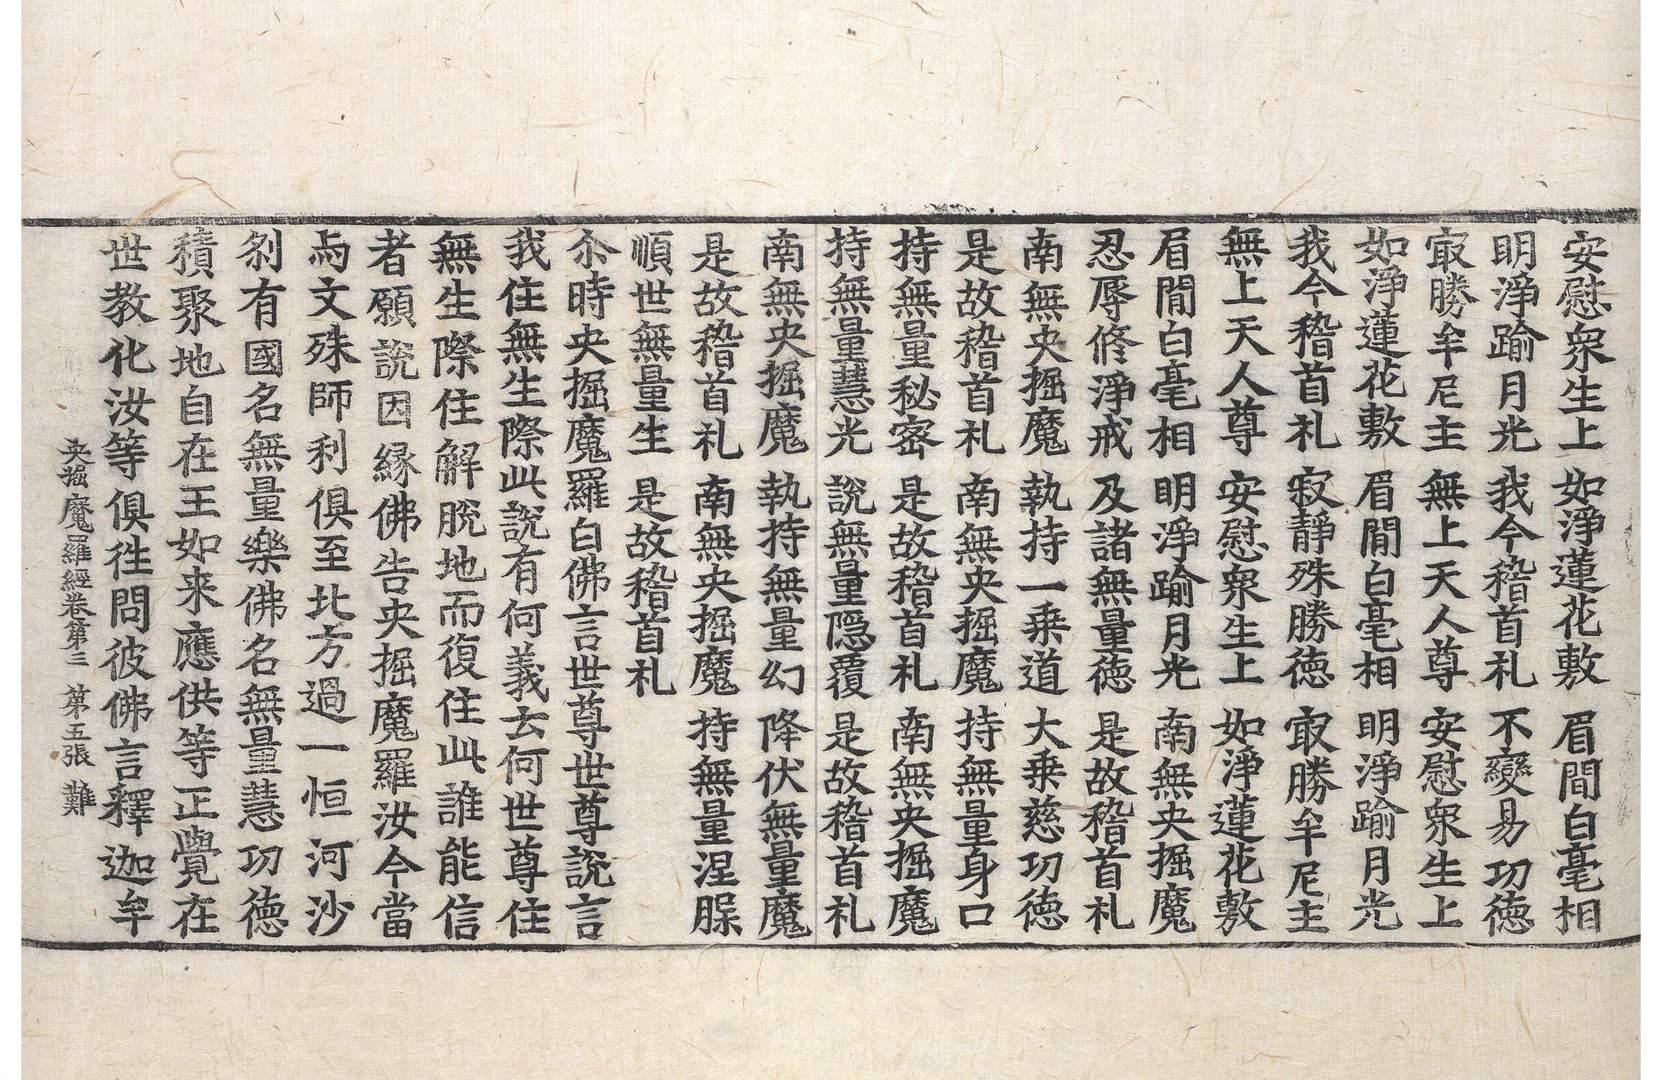 安慰衆生上 如淨蓮花敷 眉間白毫相
明淨踰月光 我今稽首礼 不變易功徳
㝡勝牟尼主 無上天人尊 安慰衆生上
如淨蓮花敷 眉間白毫相 明淨踰月光
我今稽首礼 寂靜殊勝徳 㝡勝牟尼主
無上天人尊 安慰衆生上 如淨蓮花敷
眉間白毫相 明淨踰月光 南無央掘魔
忍辱修淨戒 及諸無量徳 是故稽首礼
南無央掘魔 執持一乗道 大乗慈功徳
是故稽首礼 南無央掘魔 持無量身口
持無量秘密 是故稽首礼 南無央掘魔
持無量慧光 說無量隠覆 是故稽首礼
南無央掘魔 執持無量幻 降伏無量魔
是故稽首礼 南無央掘魔 持無量涅𣎵
順世無量生 是故稽首礼
尒時央掘魔羅白佛言世尊世尊說言
我住無生際此說有何義云何世尊住
無生際住解脫地而復住此誰能信
者願說因縁佛告央掘魔羅汝今當
与文殊師利俱至北方過一恒河沙
刹有國名無量樂佛名無量慧功徳
積聚地自在王如来應供等正覺在
世教化汝等俱徃問彼佛言釋迦牟
央掘魔羅經卷第三 第五張 難